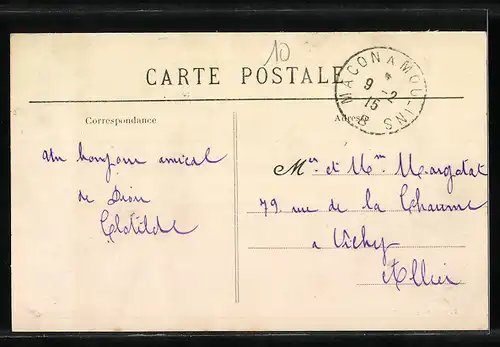 10
CARTE POSTALE
MACON A MOULINS
9 - 2
15
B
Correspondance
Adresse
un bonjour amical
de Dion
Clotilde
Mr et Mme Margotat
79 rue de la Chaume
a Vichy
Allier